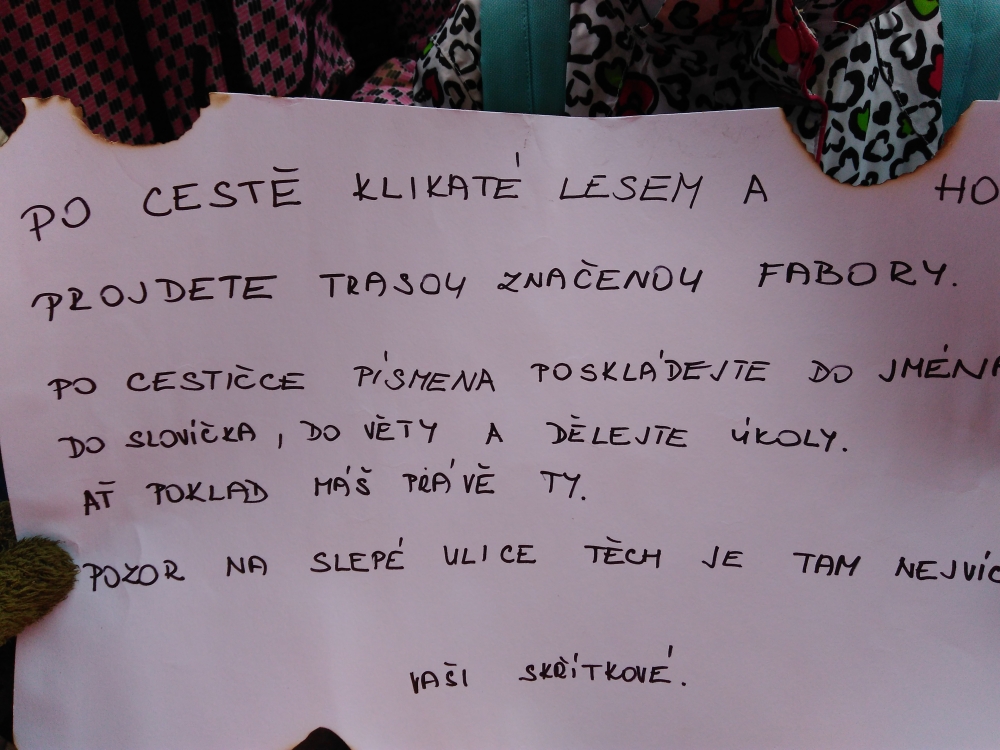 PO CESTĚ KLIKATÉ LESEM A HO
PROJDETE TRASOU ZNAČENOU FABORY.
PO CESTIČCE PÍSMENA POSKLÁDEJTE DO JMÉNA
DO SLOVÍČKA, DO VĚTY A DĚLEJTE ÚKOLY.
AŤ POKLAD MÁŠ PRÁVĚ TY.
POZOR NA SLEPÉ ULICE TĚCH JE TAM NEJVÍC
VAŠI SKŘÍTKOVÉ.